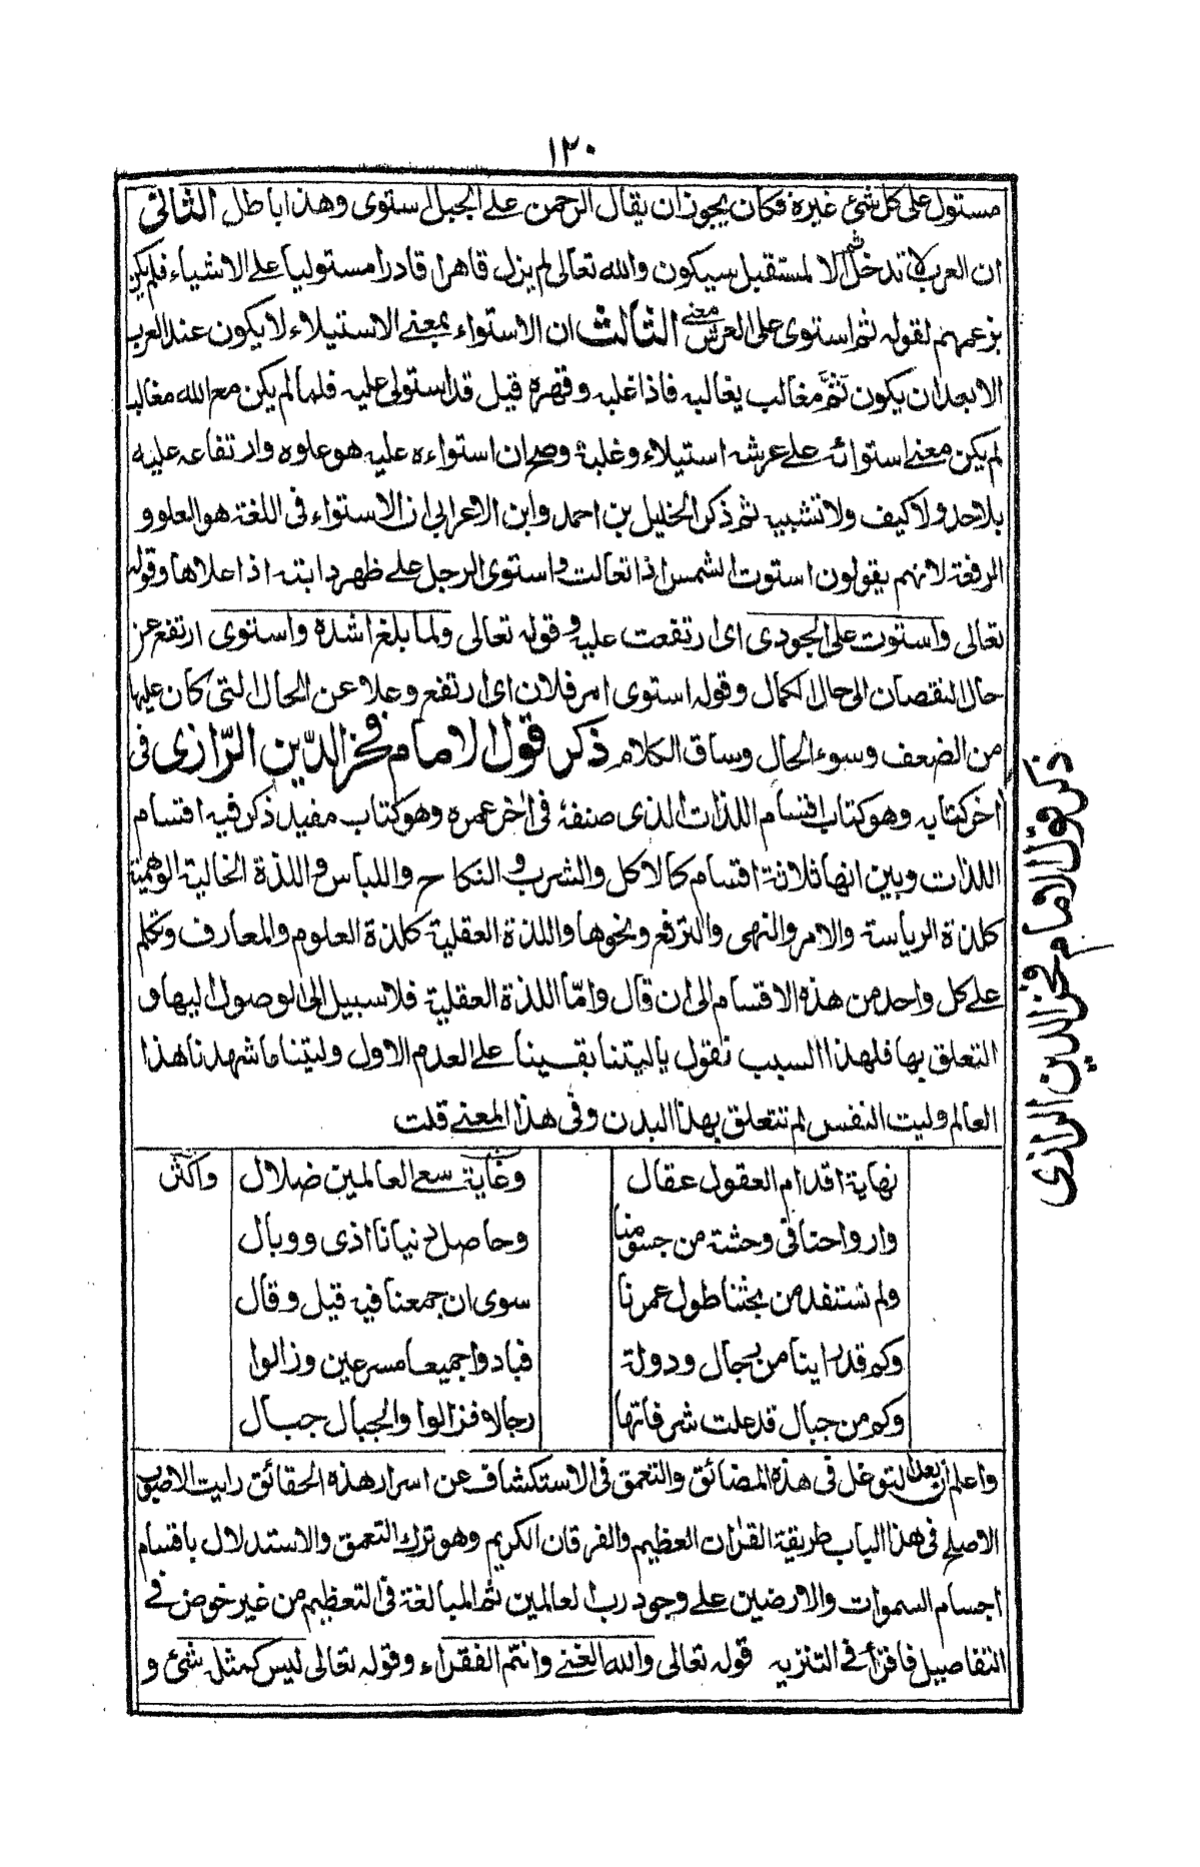 ١٢٠
مستول على كل شئ غيره فكان يجوز ان يقال الرحمن على الجبل استوى وهذا باطل الثانى
ان العرب لا تدخل ثم الا لمستقبل سيكون والله تعالى لم يزل قاهرا قادرا مستوليا على الاشياء فلم يكن
بزعمهم لقوله ثم استوى على العرش معنى الثالث ان الاستواء بمعنى الاستيلاء لا يكون عند العرب
الا بعد ان يكون ثَمَّ مغالب يغالبه فاذا غلبه وقهره قيل قد استولى عليه فلما لم يكن مع الله مغالب
لم يكن معنى استوائه على عرشه استيلاء وغلبة وصح ان استواءه عليه هو علوه وارتفاعه عليه
بلا حد ولا كيف ولا تشبيه ثم ذكر الخليل بن احمد وابن الاعرابى ان الاستواء فى اللغة هو العلو و
الرفعة لانهم يقولون استوت الشمس اذا تعالت واستوى الرجل على ظهر دابته اذا علاها وقوله
تعالى واستوت على الجودى اى ارتفعت عليه وقوله تعالى ولما بلغ اشده واستوى ارتفع عن
حال النقصان الى حال الكمال وقوله استوى امر فلان اى ارتفع وعلا عن الحال التى كان عليها
من الضعف وسوء الحال وساق الكلام ذكر قول الامام فخر الدّين الرّازى فى
اخر كتابه وهو كتاب اقسام اللذات الذى صنفه فى اخر عمره وهو كتاب مفيد ذكر فيه اقسام
اللذات وبين انها ثلاثة اقسام كالاكل والشرب والنكاح واللباس واللذة الخالية الوهمية
كلذة الرياسة والامر والنهى والترفع ونحوها واللذة العقلية كلذة العلوم والمعارف وتكلم
على كل واحد من هذه الاقسام الى ان قال وامّا اللذة العقلية فلا سبيل الى الوصول اليها و
التعلق بها فلهذا السبب نقول ياليتنا بقينا على العدم الاول وليتنا ما شهدنا هذا
العالم وليت النفس لم تتعلق بهذا البدن وفى هذا المعنى قلت
نهاية اقدام العقول عقال وغاية سعى العالمين ضلال واكثر
وارواحنا فى وحشة من جسومنا وحاصل دنيانا اذى ووبال
ولم نستفد من بحثنا طول عمرنا سوى ان جمعنا فيه قيل وقال
وكم قد راينا من رجال ودولة فبادوا جميعا مسرعين وزالوا
وكم من جبال قد علت شرفاتها رجال فزالوا والجبال جبال
واعلم ان بعد التوغل فى هذه المضائق والتعمق فى الاستكشاف عن اسرار هذه الحقائق رايت الاصوب
الاصلح فى هذا الباب طريقة القران العظيم والفرقان الكريم وهو ترك التعمق والاستدلال باقسام
اجسام السموات والارضين على وجود رب العالمين ثم المبالغة فى التعظيم من غير خوض فى
التفاصيل فاقرأ فى التنزيه قوله تعالى والله الغنى وانتم الفقراء وقوله تعالى ليس كمثله شئ و
ذكر قول الامام فخر الدين الرازى